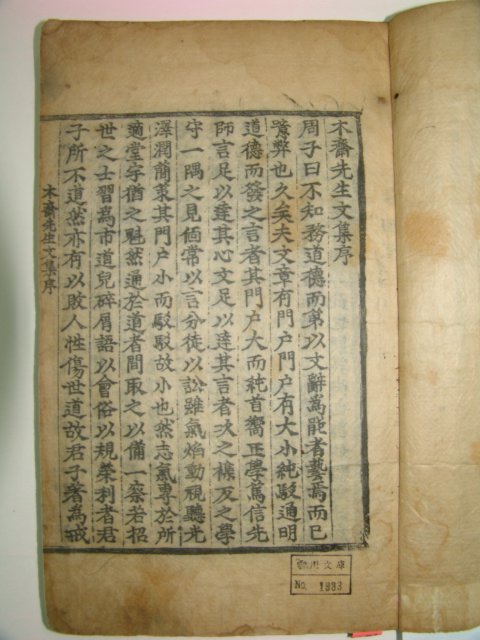 木齋先生文集序
周子曰不知務道德而第以文辭爲能者藝焉而已
弊也久矣夫文章有門戶門戶有大小純駁通明
道德而發之言者其門戶大而純首嚮正學篤信先
師言足以達其心文足以達其言者次之稽友之學
守一隅之見個常以言分徒以訟雖氣焰動視聽光
澤潤簡策其門戶小而駁駁故小也然志氣專於所
適堂宇猶之魁然通於道者間取之以備一察若招
世之士習爲市道兒碎屑語以會俗以規榮利者君
子所不道然亦有以敗人性傷世道故君子耆爲戒
木齋先生文集序
文庫
No. 1933